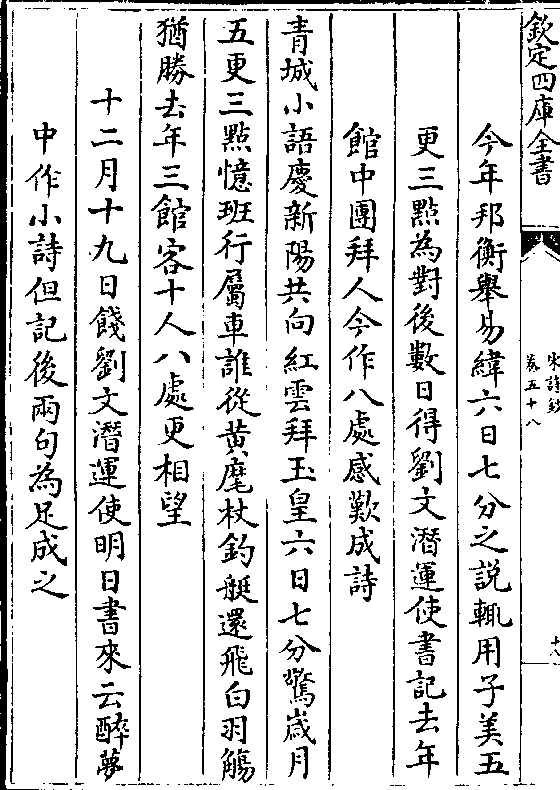 欽定四庫全書
宋詩鈔
卷五十八
今年邦衡舉易緯六日七分之説輙用子美五
更三點為對後數日得劉文潛運使書記去年
館中團拜人今作八處感歎成詩
青城小語慶新陽共向紅雲拜玉皇六日七分驚歳月
五更三點憶班行屬車誰從黄麾杖釣艇還飛白羽觴
猶勝去年三館客十人八處更相望
十二月十九日餞劉文潛運使明日書來云醉夢
中作小詩但記後兩句為足成之